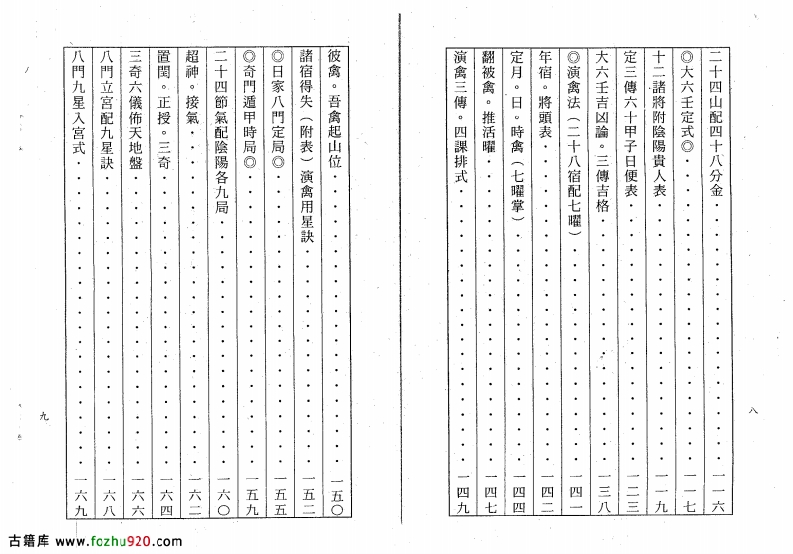 二十四山配四十八分金・・・・・・・・・・・・・・・一一六
◎大六壬定式◎・・・・・・・・・・・・・・・一一七
十二諸將附陰陽貴人表・・・・・・・・・・・・・・・一一九
定三傳六十甲子日便表・・・・・・・・・・・・・・・一二三
大六壬吉凶論。三傳吉格・・・・・・・・・・・・・・・一三八
◎演禽法（二十八宿配七曜）・・・・・・・・・・・・・・・一四一
年宿。將頭表・・・・・・・・・・・・・・・一四二
定月。日。時禽（七曜掌）・・・・・・・・・・・・・・・一四四
翻被禽。推活曜・・・・・・・・・・・・・・・一四七
演禽三傳。四課排式・・・・・・・・・・・・・・・一四九
八
彼禽。吾禽起山位・・・・・・・・・・・・・・・一五〇
諸宿得失（附表）演禽用星訣・・・・・・・・・・・・・・・一五二
◎日家八門定局◎・・・・・・・・・・・・・・・一五五
◎奇門遁甲時局◎・・・・・・・・・・・・・・・一五九
二十四節氣配陰陽各九局・・・・・・・・・・・・・・・一六〇
超神。接氣・・・・・・・・・・・・・・・一六二
置閏。正授。三奇・・・・・・・・・・・・・・・一六四
三奇六儀佈天地盤・・・・・・・・・・・・・・・一六六
八門立宮配九星訣・・・・・・・・・・・・・・・一六八
八門九星入宮式・・・・・・・・・・・・・・・一六九
九
古籍库 www.fozhu920.com